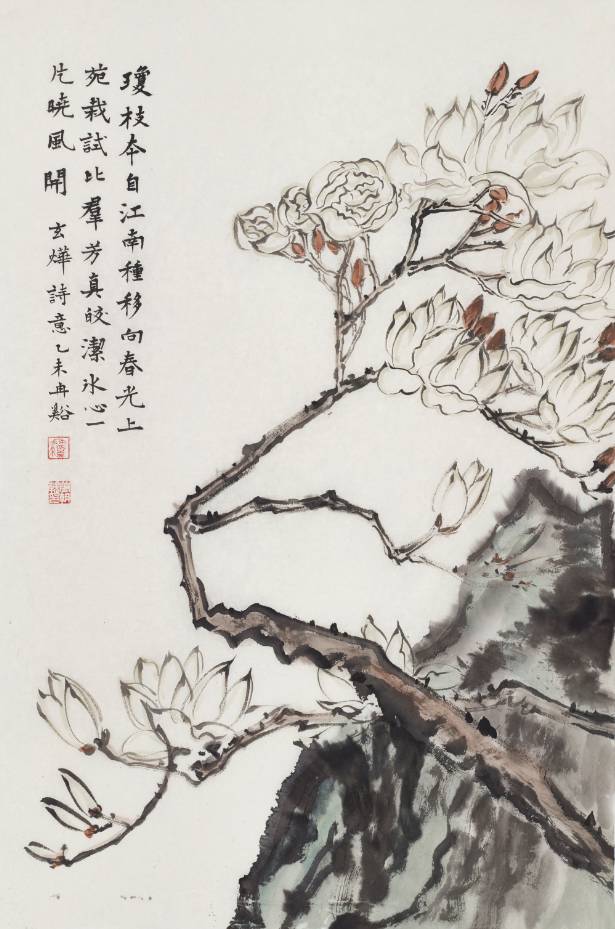 瓊枝本自江南種移向春光上
苑栽試比羣芳真皎潔冰心一
片曉風開 玄燁詩意乙未冉谿